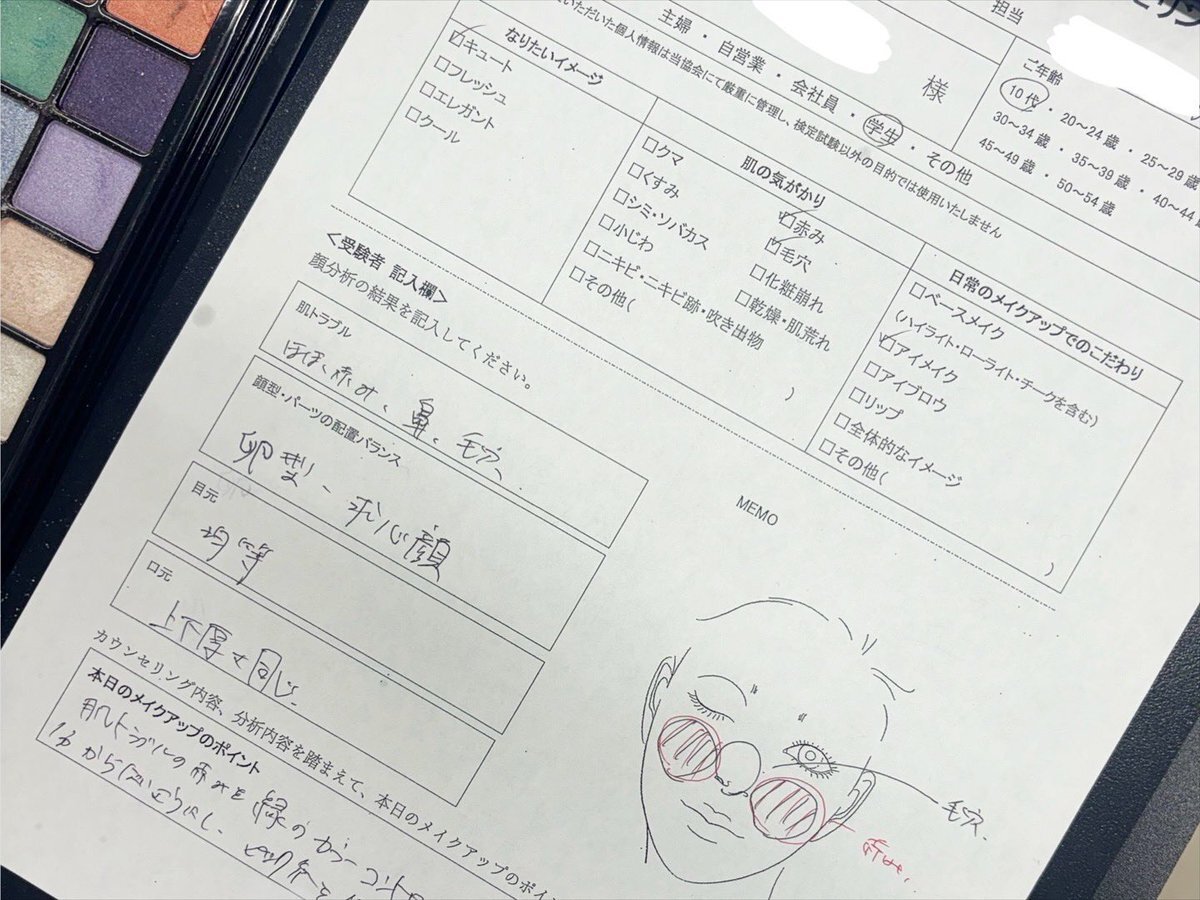 担当
主婦・自営業・会社員・学生・その他
様
ご年齢
10代・20～24歳・25～29歳
30～34歳・35～39歳・40～44歳
45～49歳・50～54歳
いただいた個人情報は当協会にて厳重に管理し、検定試験以外の目的では使用いたしません
なりたいイメージ
☑キュート
□フレッシュ
□エレガント
□クール
肌の気がかり
□クマ
□くすみ
□シミ・ソバカス
□小じわ
□ニキビ・ニキビ跡・吹き出物
□その他(
)
☑赤み
☑毛穴
□化粧崩れ
□乾燥・肌荒れ
日常のメイクアップでのこだわり
□ベースメイク
(ハイライト・ローライト・チークを含む)
☑アイメイク
□アイブロウ
□リップ
□全体的なイメージ
□その他(
)
<受験者 記入欄>
顔分析の結果を記入してください。
肌トラブル
ほほ、赤み、鼻、毛穴、
顔型・パーツの配置バランス
卵型、求心顔
目元
均等
口元
上下厚て同じ
MEMO
毛穴
カウンセリング内容、分析内容を踏まえて、本日のメイクアップのポイン
本日のメイクアップのポイント
肌トラブルの赤みを緑のカラーコント